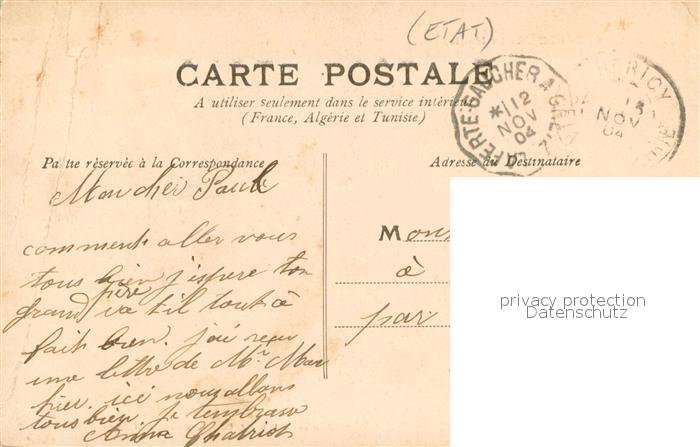 (ETAT)
CARTE POSTALE
A utiliser seulement dans le service intérieur
(France, Algérie et Tunisie)
LAFERTE-GAUCHER A
*112
NOV
04
NOV
04
Partie réservée à la Correspondance
Adresse du Destinataire
Mon cher Paul
comment aller vous
tous bien j'espere ton
grand père va til tout à
fait bien. j'ai reçu
une lettre de Mr Mar
hier. ici nous allons
tous bien je tembrasse
Anna Chatriot
Mons
à
par
privacy protection
Datenschutz